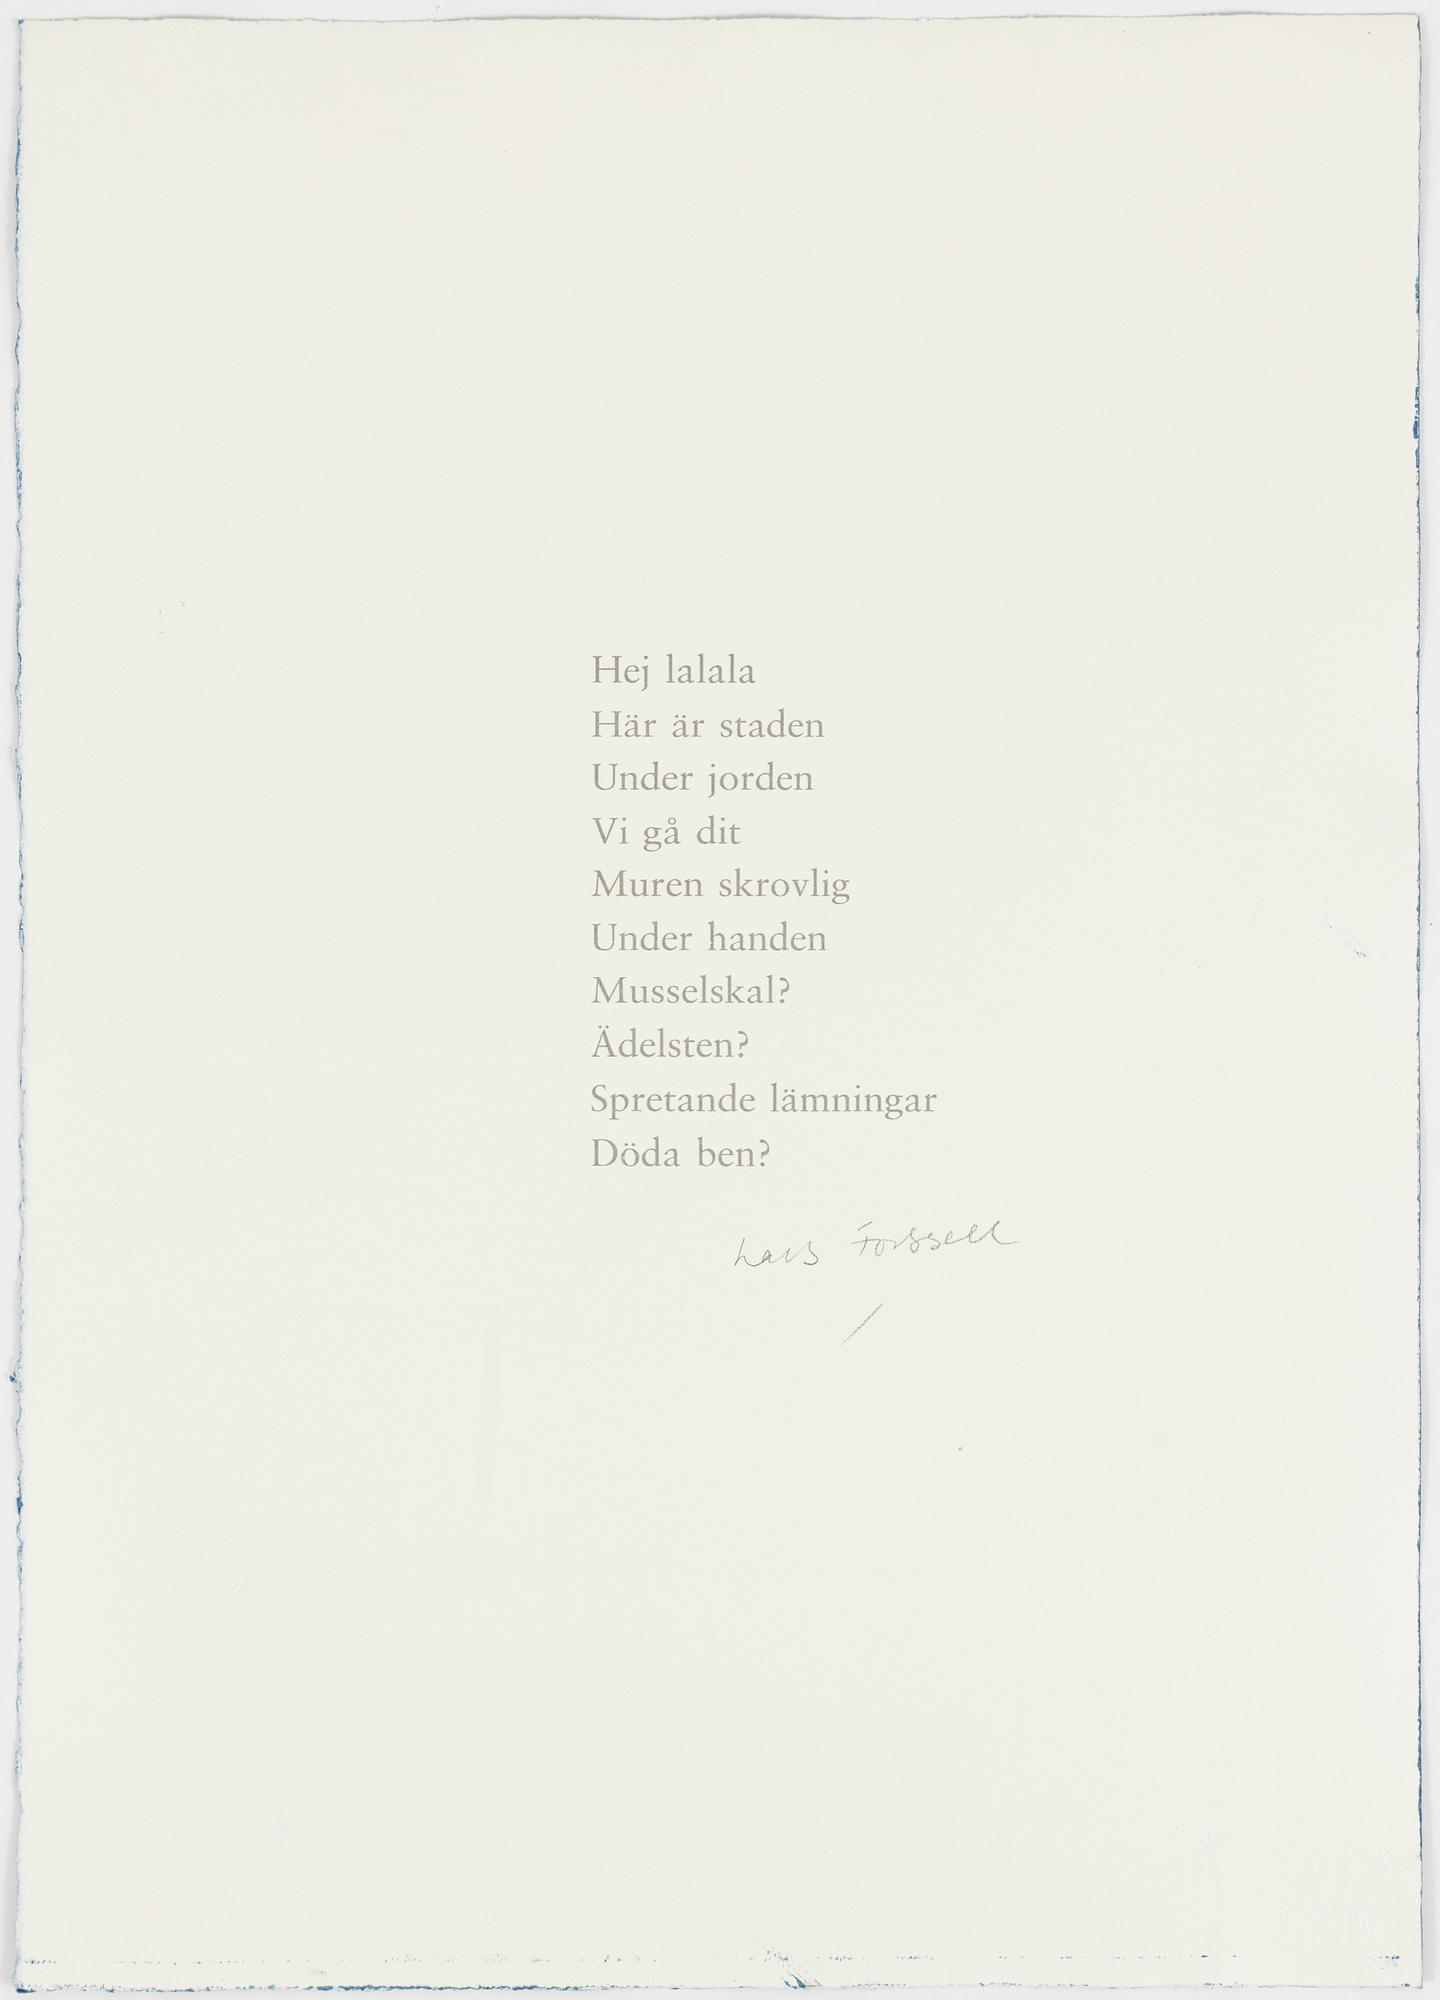 Hej lalala
Här är staden
Under jorden
Vi gå dit
Muren skrovlig
Under handen
Musselskal?
Ädelsten?
Spretande lämningar
Döda ben?
Lars Forssell
/